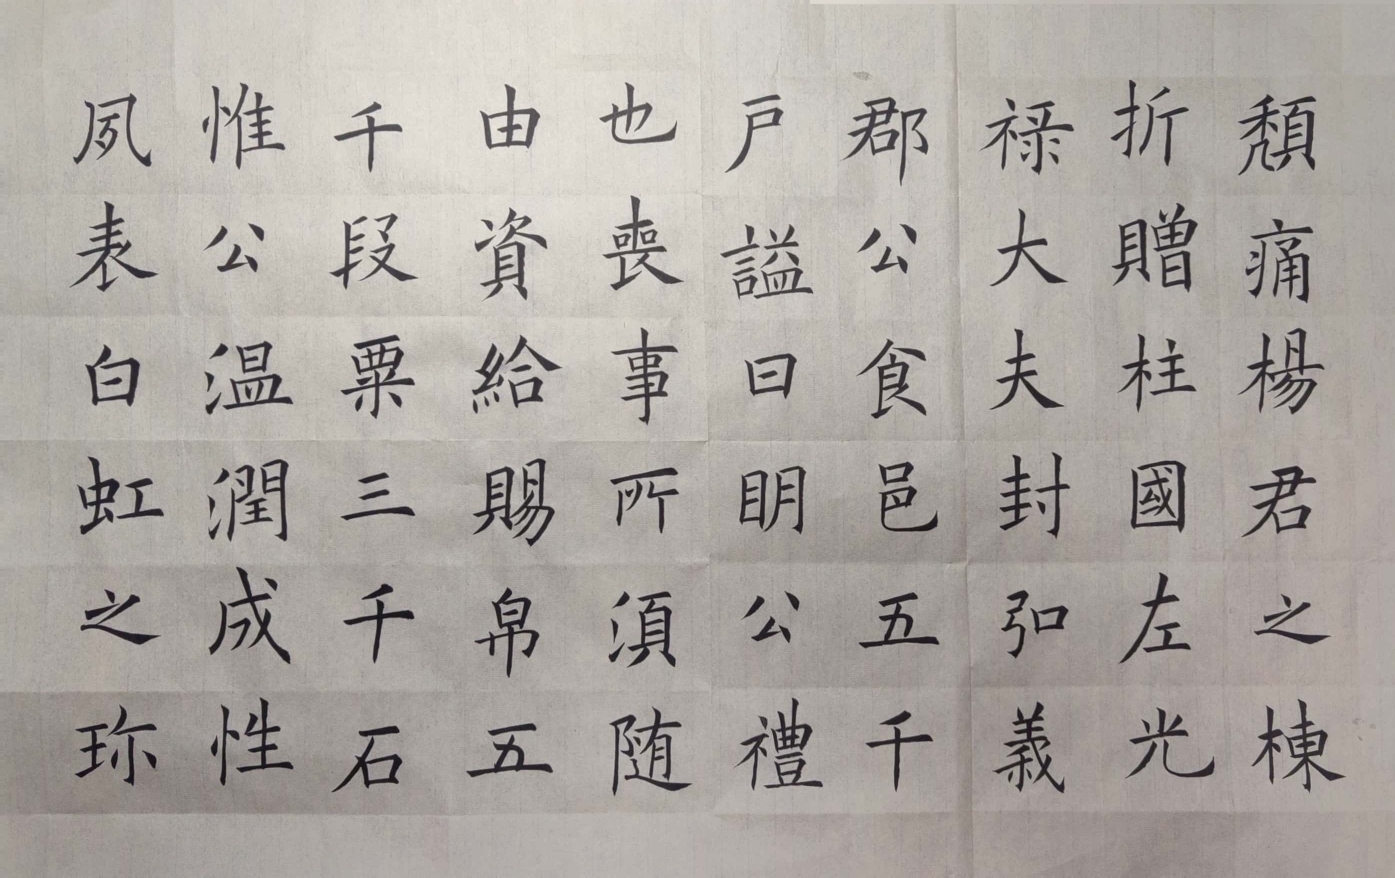 頽痛楊君之棟
折贈柱國左光
禄大夫封弘義
郡公食邑五千
戸謚曰明公禮
也喪事所須随
由資給賜帛五
千段粟三千石
惟公温潤成性
夙表白虹之珎